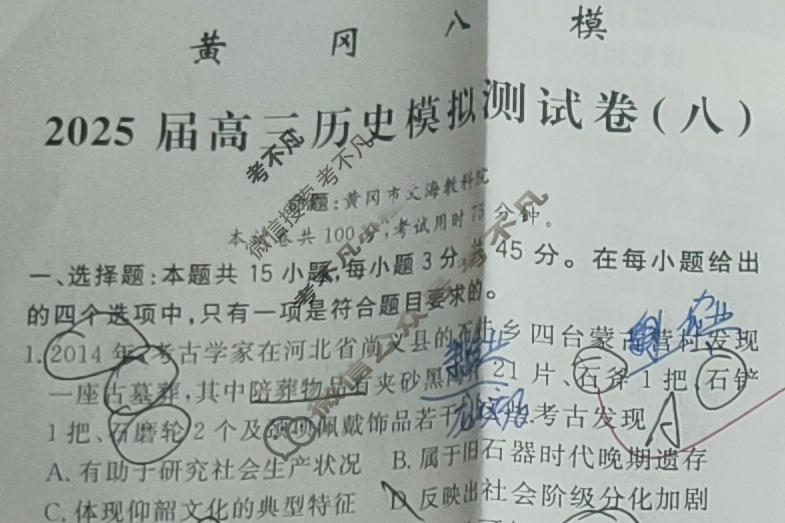 黄冈八模
2025届高三历史模拟测试卷(八)
命题:黄冈市文海教科院
本试卷共100分,考试用时75分钟。
一、选择题:本题共15小题,每小题3分,共45分。在每小题给出
的四个选项中,只有一项是符合题目要求的。
1.2014年,考古学家在河北省尚义县的不 乡四台蒙古营村发现
一座古墓葬,其中陪葬物品有夹砂黑陶片21片、石斧1把、石铲
1把、石磨轮2个及 佩戴饰品若干 考古发现
A
A.有助于研究社会生产状况 B.属于旧石器时代晚期遗存
C.体现仰韶文化的典型特征 D.反映出社会阶级分化加剧
微信搜索 考不凡
考不凡
微信公众号
考不凡